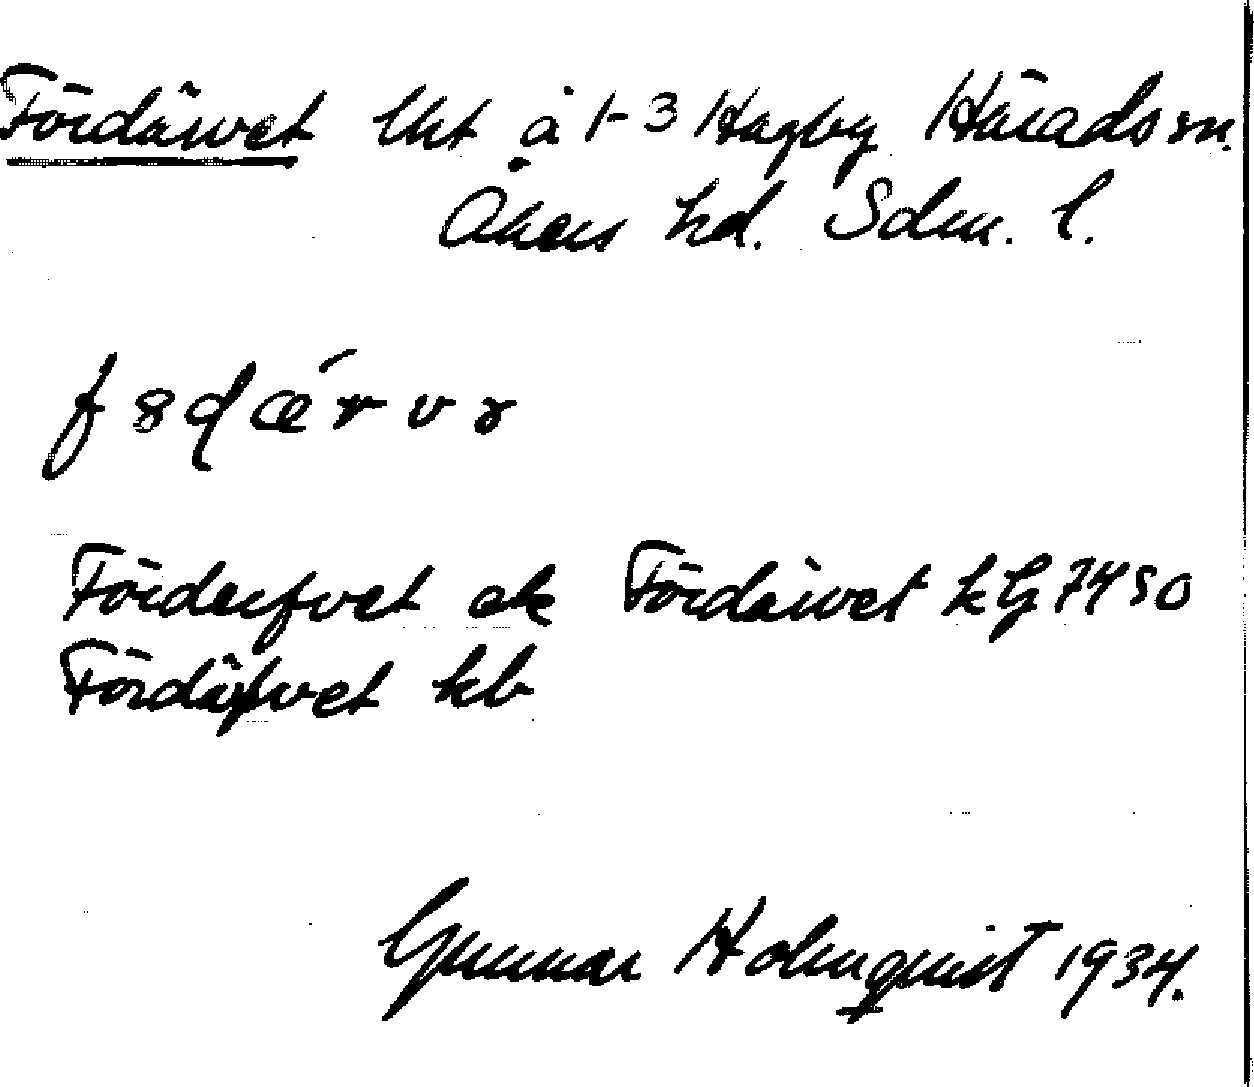 Fördärvet lht å 1-3 Hagby Härads sn.
Åkers hd. Sdm. l.
f 8 d ǽ r v ɤ
Förderfvet ek Fördärvet k G 7450
Fördäfvet kb
Gunnar Holmquist 1934.